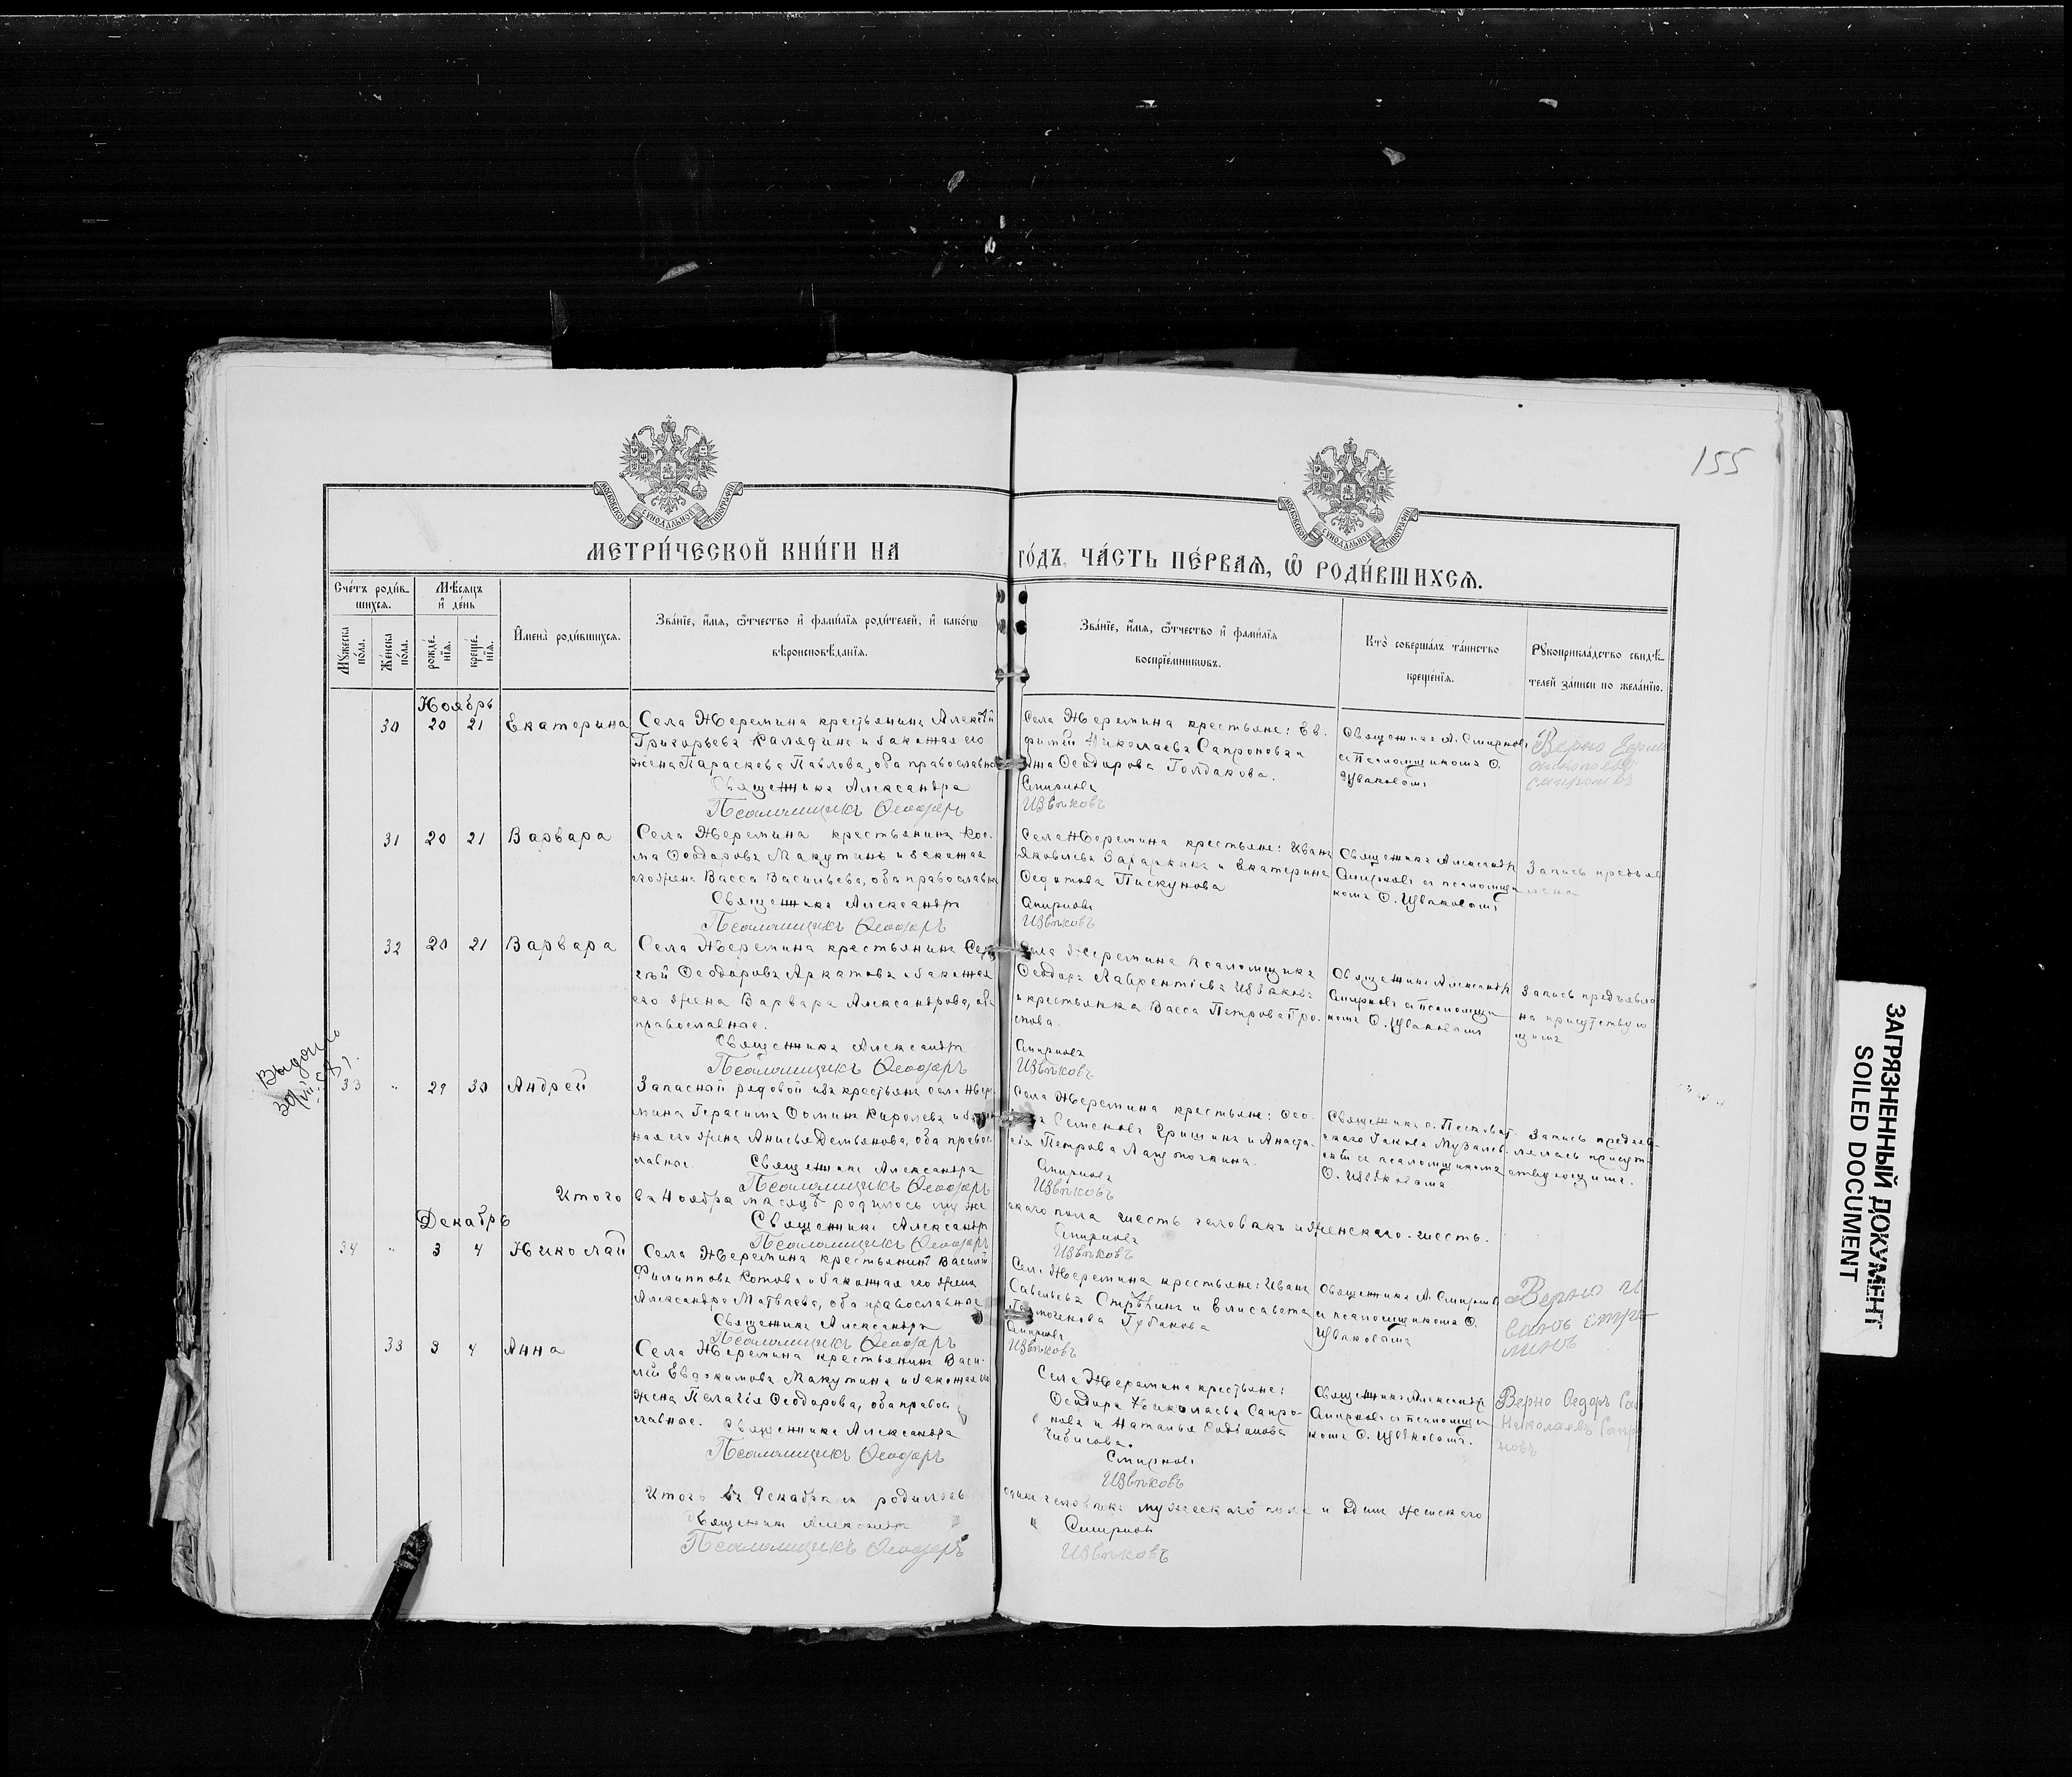 155
МОСКОВСКОЙ СѴНОДАЛЬНОЙ ТИПОГРАФІИ
МОСКОВСКОЙ СѴНОДАЛЬНОЙ ТИПОГРАФІИ
МЕТРИ́ЧЕСКОЙ КНИ́ГИ НА
ГО́ДЪ, ЧА́СТЬ ПЕ́РВАѦ, Ѽ РОДИ́ВШИХСѦ.
Сче́тъ роди́в-
шихсѧ.
Мѣсѧцъ
и҆ де́нь
Мꙋ́жеска по́ла.
Же́нска по́ла.
рожде́нїѧ.
креще́нїѧ.
И҆мена̀ роди́вшихсѧ.
Зва́нїе, и҆́мѧ, ѻ҆́тчество и҆ фами́лїѧ роди́телей, и҆ како́гѡ
вѣроисповѣ́данїѧ.
Зва́нїе, и҆́мѧ, ѻ҆́тчество и҆ фами́лїѧ
воспрїе́мникѡвъ.
Кто̀ соверша́лъ та́инство
креще́нїѧ.
Рꙋкоприкла́дство свидѣ́-
телей за́писи по жела́нїю.
Ноябрь
30 20 21 Екатерина
Села Жеремина крестьянинъ Алексѣй
Григорьевъ Калядинъ и законная его
жена Параскева Павлова, оба православные
Священникъ Александръ
Псаломщикъ Ѳеодоръ
Села Жеремина крестьяне: Ев-
фимій Николаевъ Сапроновъ и
Ѳеодорова Голдакова.
Смирновъ
Извѣковъ
Священникъ А. Смирновъ
съ псаломщикомъ Ѳ.
Извѣковымъ
Вѣрно
31 20 21 Варвара
Села Жеремина крестьянинъ Кос-
ма Ѳеодоровъ Макутинъ и законная
его жена Васса Васильева, оба православные
Священникъ Александръ
Псаломщикъ Ѳеодоръ
Села Жеремина крестьяне: Иванъ
Яковлевъ и Екатерина
Ѳедотова Пискунова
Смирновъ
Извѣковъ
Священникъ Александръ
Смирновъ съ псаломщи-
комъ Ѳ. Извѣковымъ
Запись предъяв-
лена
32 20 21 Варвара
Села Жеремина крестьянинъ Сер-
гѣй Ѳеодоровъ Аркатовъ и законная
его жена Варвара Александрова, оба
православные.
Священникъ Александръ
Псаломщикъ Ѳеодоръ
Села Жеремина псаломщикъ
Ѳеодоръ Лаврентіевъ Извѣковъ
и крестьянка Васса Петрова Гро-
мова.
Смирновъ
Извѣковъ
Священникъ Александръ
Смирновъ съ псаломщи-
комъ Ѳ. Извѣковымъ
Запись предъявле-
на присутствую
щимъ
Выдано
33 " 29 30 Андрей
Запасной рядовой изъ крестьянъ села Жере-
мина Герасимъ Ѳоминъ Киролевъ и закон-
ная его жена Анисья Демьянова, оба право-
славные. Священникъ Александръ
Псаломщикъ Ѳеодоръ
Села Жеремина крестьяне: Ѳео-
Семеновъ Гришинъ и Анаста-
сія Петрова Лашточкина.
Смирновъ
Извѣковъ
съ псаломщикомъ
Ѳ. Извѣковымъ
Запись предъяв-
лялась присут-
ствующимъ.
Итого въ Ноябрѣ мѣсяцѣ родилось муже
скаго пола шесть человѣкъ и женскаго-шесть.
Священникъ Александръ
Смирновъ
Псаломщикъ Ѳеодоръ
Извѣковъ
Декабрь
34 " 3 4 Николай
Села Жеремина крестьянинъ Василій
Филипповъ Котовъ и законная его жена
Александра Матвѣева, оба православные
Священникъ Александръ
Псаломщикъ Ѳеодоръ
Села Жеремина крестьяне: Иванъ
Савельевъ Стрѣлинъ и Елисавета
Губанова
Смирновъ
Извѣковъ
Священникъ А. Смирновъ
съ псаломщикомъ Ѳ.
Извѣковымъ
Вѣрно И
ванъ Стре
линъ
33 3 4 Анна
Села Жеремина крестьянинъ Васи-
лій Евдокимовъ Макутинъ и законная его
жена Пелагія Ѳеодорова, оба право
славные. Священникъ Александръ
Псаломщикъ Ѳеодоръ
Села Жеремина крестьяне:
Ѳеодоръ Николаевъ Сапро-
новъ и Наталья Родіонова
Чибисова.
Смирновъ
Извѣковъ
Священникъ Александръ
Смирновъ съ псаломщи
комъ Ѳ. Извѣковымъ.
Вѣрно Ѳедоръ
Николаевъ Сапро
новъ
Итого въ Декабрѣ м родилось
одинъ человѣкъ мужескаго пола и одинъ женскаго
Священникъ Александръ
Смирновъ
Псаломщикъ Ѳеодоръ
Извѣковъ
ЗАГРЯЗНЕННЫЙ ДОКУМЕНТ
SOILED DOCUMENT